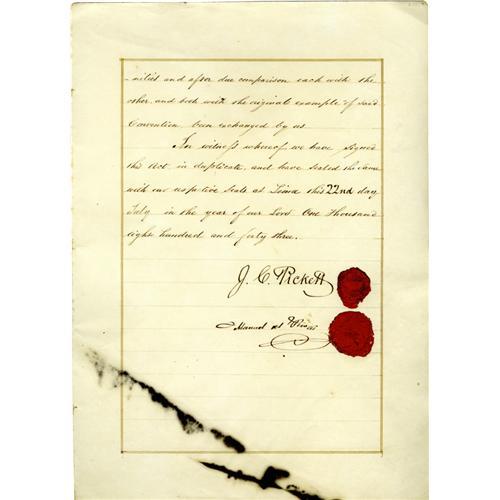 -nities and after due comparison each with the
other, and both with the original example of said
Convention been exchanged by us.
In witness whereof, we have signed
this Act in duplicate, and have sealed the same
with our respective Seals at Lima this 22nd day
July in the year of our Lord One Thousand
eight hundred and forty three.
J. C. Pickett
Manuel del Rio